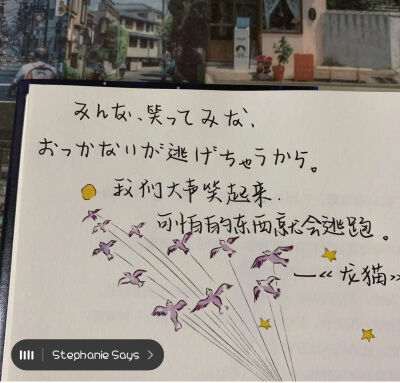 みんな、笑ってみな、
おっかないが逃げちゃうから。
我们大声笑起来.
可怕的东西就会逃跑。
—《龙猫》
Stephanie Says